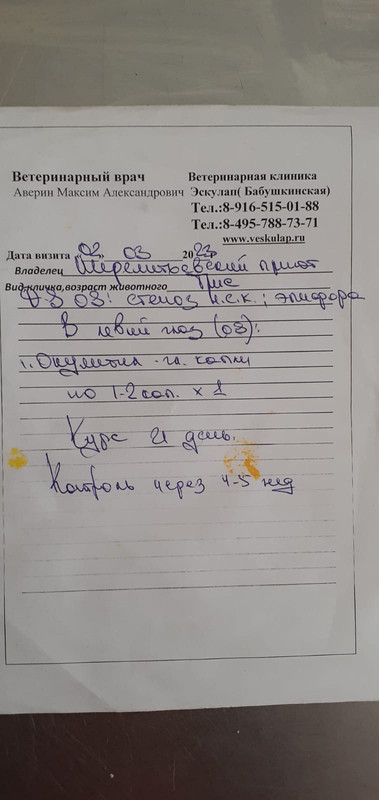 Ветеринарный врач Ветеринарная клиника
Аверин Максим Александрович Эскулап( Бабушкинская)
Тел.:8-916-515-01-88
Тел.:8-495-788-73-71
www.veskulap.ru
Дата визита «02» 03 2023г
Владелец Шереметьевский приют
Вид,кличка,возраст животного
DS OS: стеноз н.с.к.; эпифора
В левый глаз (OS):
1. гл. капли
по 1-2 кап. х 1
Курс 21 день.
Контроль через 4-5 нед